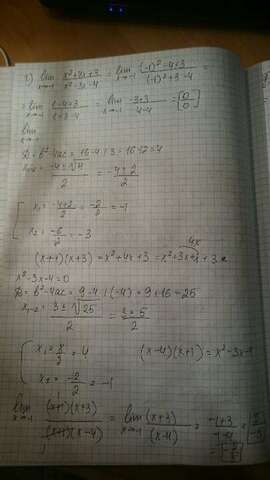 2) lim x→-1 (x²+4x+3)/(x²-3x-4) = lim x→-1 ((-1)²-4+3)/((-1)²+3-4) =
= lim x→-1 (1-4+3)/(1+3-4) = lim x→-1 (-3+3)/(4-4) = [0/0]
lim x→-1
D = b²-4ac = 16-4·1·3 = 16-12 = 4
x₁,₂ = (-4±√4)/2 = (-4±2)/2
x₁ = (-4+2)/2 = -2/2 = -1
x₂ = -6/2 = -3
(x+1)(x+3) = x²+4x+3 = x²+3x+x+3
4x
x²-3x-4=0
D = b²-4ac = 9-4·1·(-4) = 9+16 = 25
x₁-₂ = (3±√25)/2 = (3±5)/2
x₁ = 8/2 = 4 (x-4)(x+1) = x²-3x-4
x₂ = -2/2 = -1
lim x→-1 (x+1)(x+3)/(x+1)(x-4) = lim x→-1 (x+3)/(x-4) = (-1+3)/(-1-4) =